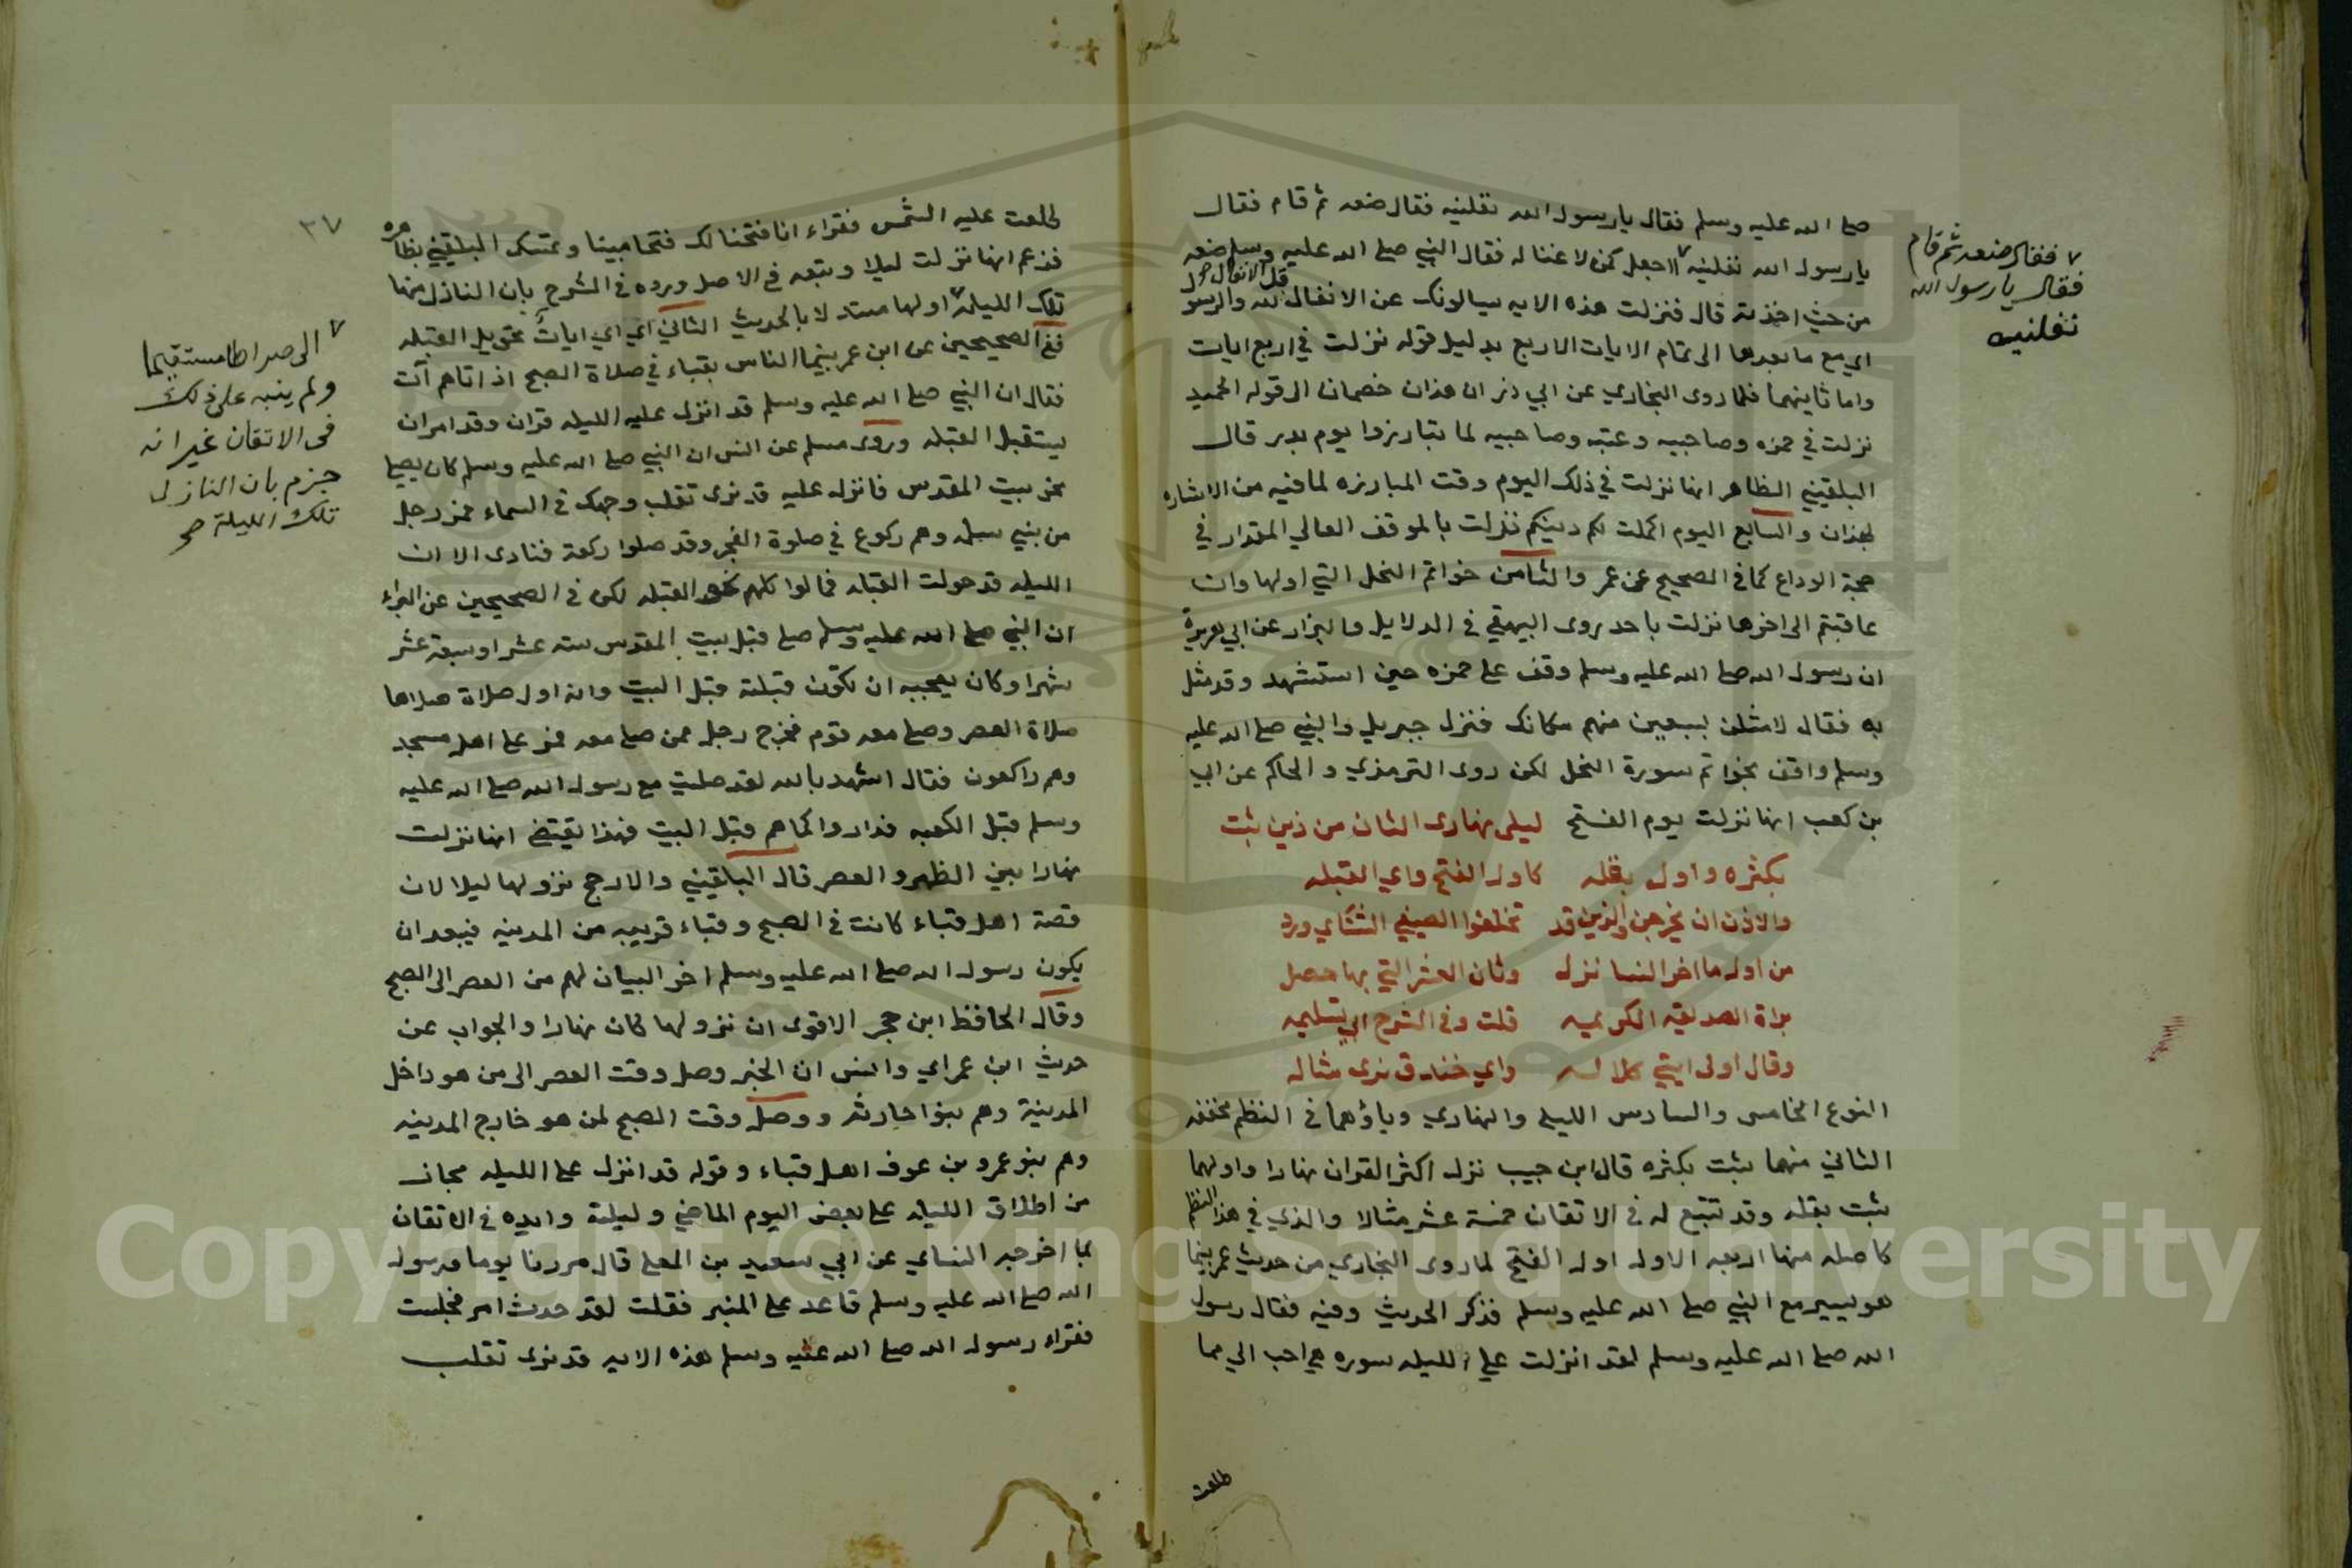 صلى الله عليه وسلم فقال يا رسول الله نفلنيه فقال ضعه ثم قام فقال
يا رسول الله نفلنيه االاجعل كمن لا غنا له فقال النبي صلى الله عليه وسلم ضعه
من حيث اخذته قال فنزلت هذه الايه يسالونك عن الانفال قل الانفال لله والرسول
اي مع ما بعدها الى تمام الايات الاربع بدليل قوله نزلت في اربع ايات
واما ثانيهما فلما روى البخاري عن ابي ذر ان هذان خصمان الى قوله الحميد
نزلت في حمزه وصاحبيه وعتبه وصاحبيه لما تبارزوا يوم بدر قال
البلقيني الظاهر انها نزلت في ذلك اليوم وقت المبارزه لما فيه من الاشاره
بهذان والسابع اليوم اكملت لكم دينكم نزلت بالموقف العالي المقدار في
حجة الوداع كما في الصحيح عن عمر والثامن خواتم النحل التي اولها وان
عاقبتم الى اخرها نزلت باحد روى البيهقي في الدلايل والبزار عن ابي هريرة
ان رسول الله صلى الله عليه وسلم وقف على حمزه حين استشهد وقد مثل
به فقال لامثلن بسبعين منهم مكانك فنزل جبريل والنبي صلى الله عليه
وسلم واقف بخواتم سورة النحل لكن روى الترمذي والحاكم عن ابي
بن كعب انها نزلت يوم الفتح ليلى نهارى الثان من ذين يثبت
بكثره واول بقله كاول الفتح واي القبله
والاذن ان يخرجن والذين قد تخلفوا الصيفي الشتاي ورد
من اول ما اخر النسا نزل وثان العشر التي بها حصل
براة الصديقه الكريميه قلت وفي الشرح اي تسليمه
وقال اولى ايتي كلاله واي خندق نرى مثاله
النوع الخامس والسادس الليلي والنهاري وياؤهما في النظم مخففه
الثاني منهما يثبت بكثره قال ابن حبيب نزل اكثر القران نهارا واولهما
يثبت بقله وقد تتبع له في الاتقان خمسة عشر مثالا والذي في هذا النظم
كاصله منها اربعه الاول اول الفتح لما روى البخاري من حديث عمر بينما
هو يسير مع النبي صلى الله عليه وسلم فذكر الحديث وفيه فقال رسول
الله صلى الله عليه وسلم لقد انزلت علي الليله سوره هي احب الي مما
طلعت
فقال ضعه ثم قام
فقال يا رسول الله
نفلنيه
٣٧
طلعت عليه الشمس فقراء انا فتحنا لك فتحا مبينا وتمسك البلقيني بظاهره
فزعم انها نزلت ليلا وتبعه في الاصل ورده في الشرح بان النازل منها
تلك الليلة اولها مستدلا بالحديث الثاني اي اي ايات تحويل القبله
ففي الصحيحين عن ابن عمر بينما الناس بقباء في صلاة الصبح اذ اتاهم آت
فقال ان النبي صلى الله عليه وسلم قد انزل عليه الليله قران وقد امر ان
يستقبل القبله وروى مسلم عن انس ان النبي صلى الله عليه وسلم كان يصلي
نحو بيت المقدس فانزل عليه قد نرى تقلب وجهك في السماء فمر رجل
من بني سلمه وهم ركوع في صلوة الفجر وقد صلوا ركعة فنادى الا ان
الليله قد حولت القبله فمالوا كلهم نحو القبله لكن في الصحيحين عن البراء
ان النبي صلى الله عليه وسلم صلى قبل بيت المقدس سته عشر او سبعة عشر
شهرا وكان يعجبه ان تكون قبلته قبل البيت وانه اول صلاة صلاها
صلاة العصر وصلى معه قوم فخرج رجل ممن صلى معه فمر على اهل مسجد
وهم راكعون فقال اشهد بالله لقد صليت مع رسول الله صلى الله عليه
وسلم قبل الكعبه فداروا كما هم قبل البيت فهذا يقتضي انها نزلت
نهارا بين الظهر والعصر قال البلقيني والارجح نزولها ليلا لان
قصة اهل قباء كانت في الصبح وقباء قريبه من المدينه فيبعد ان
يكون رسول الله صلى الله عليه وسلم اخر البيان لهم من العصر الى الصبح
وقال الحافظ ابن حجر الاقوى ان نزولها كان نهارا والجواب عن
حديث ابن عمر اي وانس ان الخبر وصل وقت العصر الى من هو داخل
المدينة وهم بنوا حارثه ووصل وقت الصبح لمن هو خارج المدينه
وهم بنو عمرو بن عوف اهل قباء وقوله قد انزل على الليله مجاز
من اطلاق الليله على بعض اليوم الماضي وليلته وايده في الاتقان
بما اخرجه النساي عن ابي سعيد بن المعلى قال مررنا يوما ورسول
الله صلى الله عليه وسلم قاعد على المنبر فقلت لقد حدث امر فجلست
فقراء رسول الله صلى الله عليه وسلم هذه الايه قد نرى تقلب
الى صراطا مستقيما
ولم ينبه على ذلك
في الاتقان غير انه
جزم بان النازل
تلك الليلة صح
Copyright © King Saud University
1957